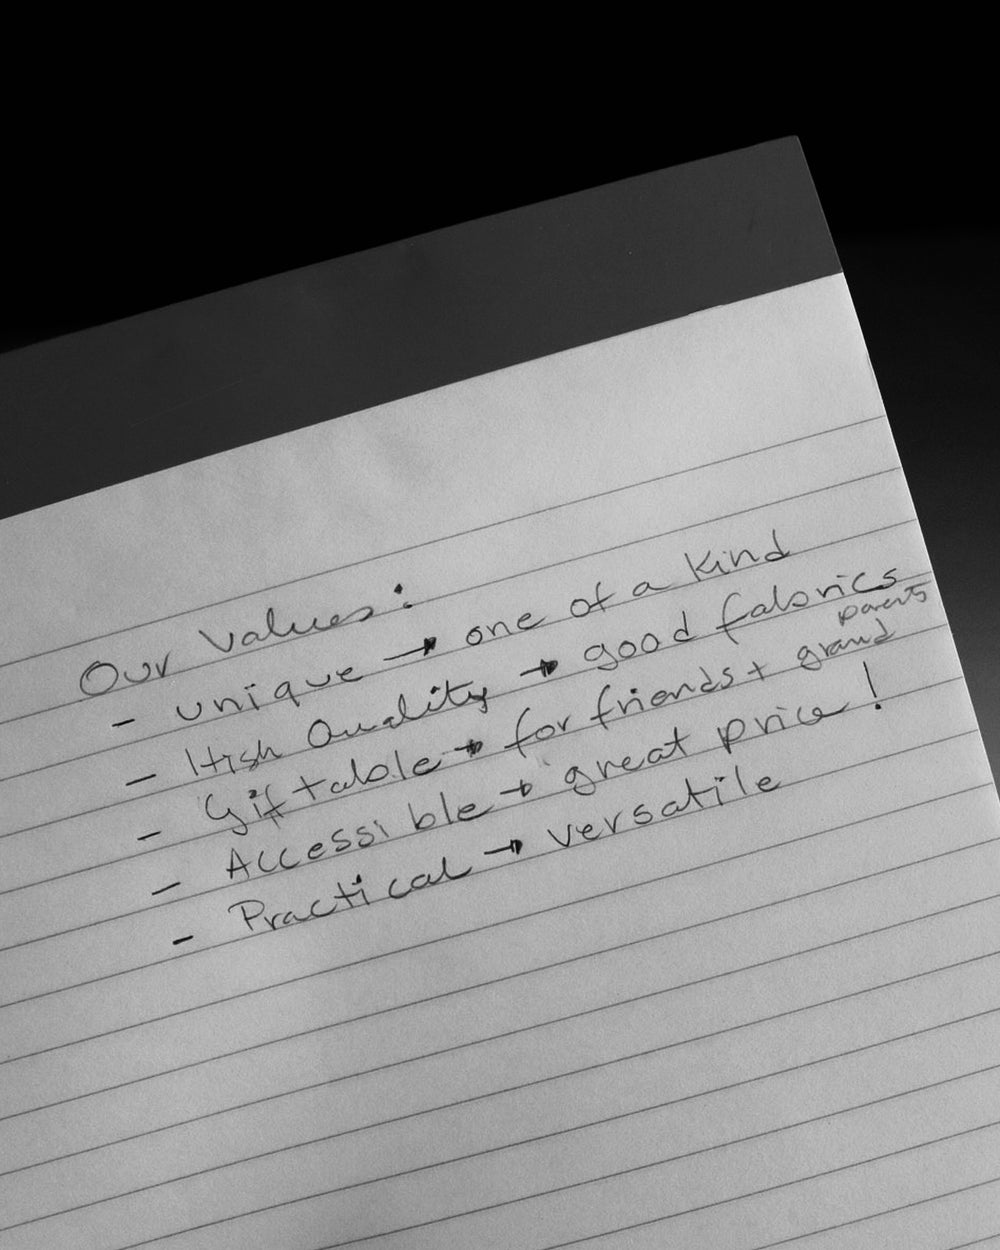 Our values:
- unique → one of a kind
- High Quality → good fabrics
- Giftable → for friends + grand parents
- Accessible → great price!
- Practical → versatile